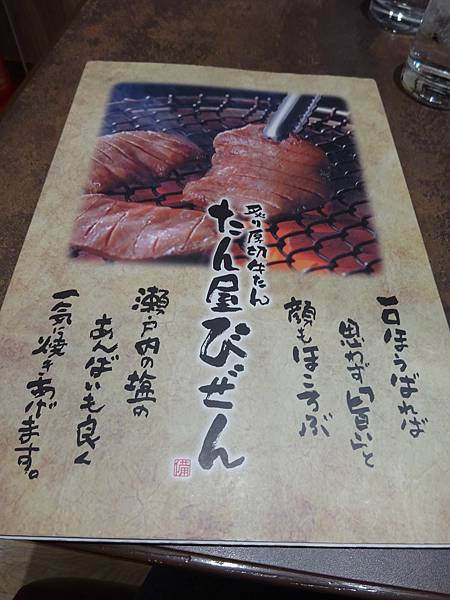 一口ほうばれば
思わず「旨い」と
顔もほころぶ
炙り厚切牛たん
たん屋びぜん
備
瀬戸内の塩の
あんばいも良く
一気に焼きあげます。